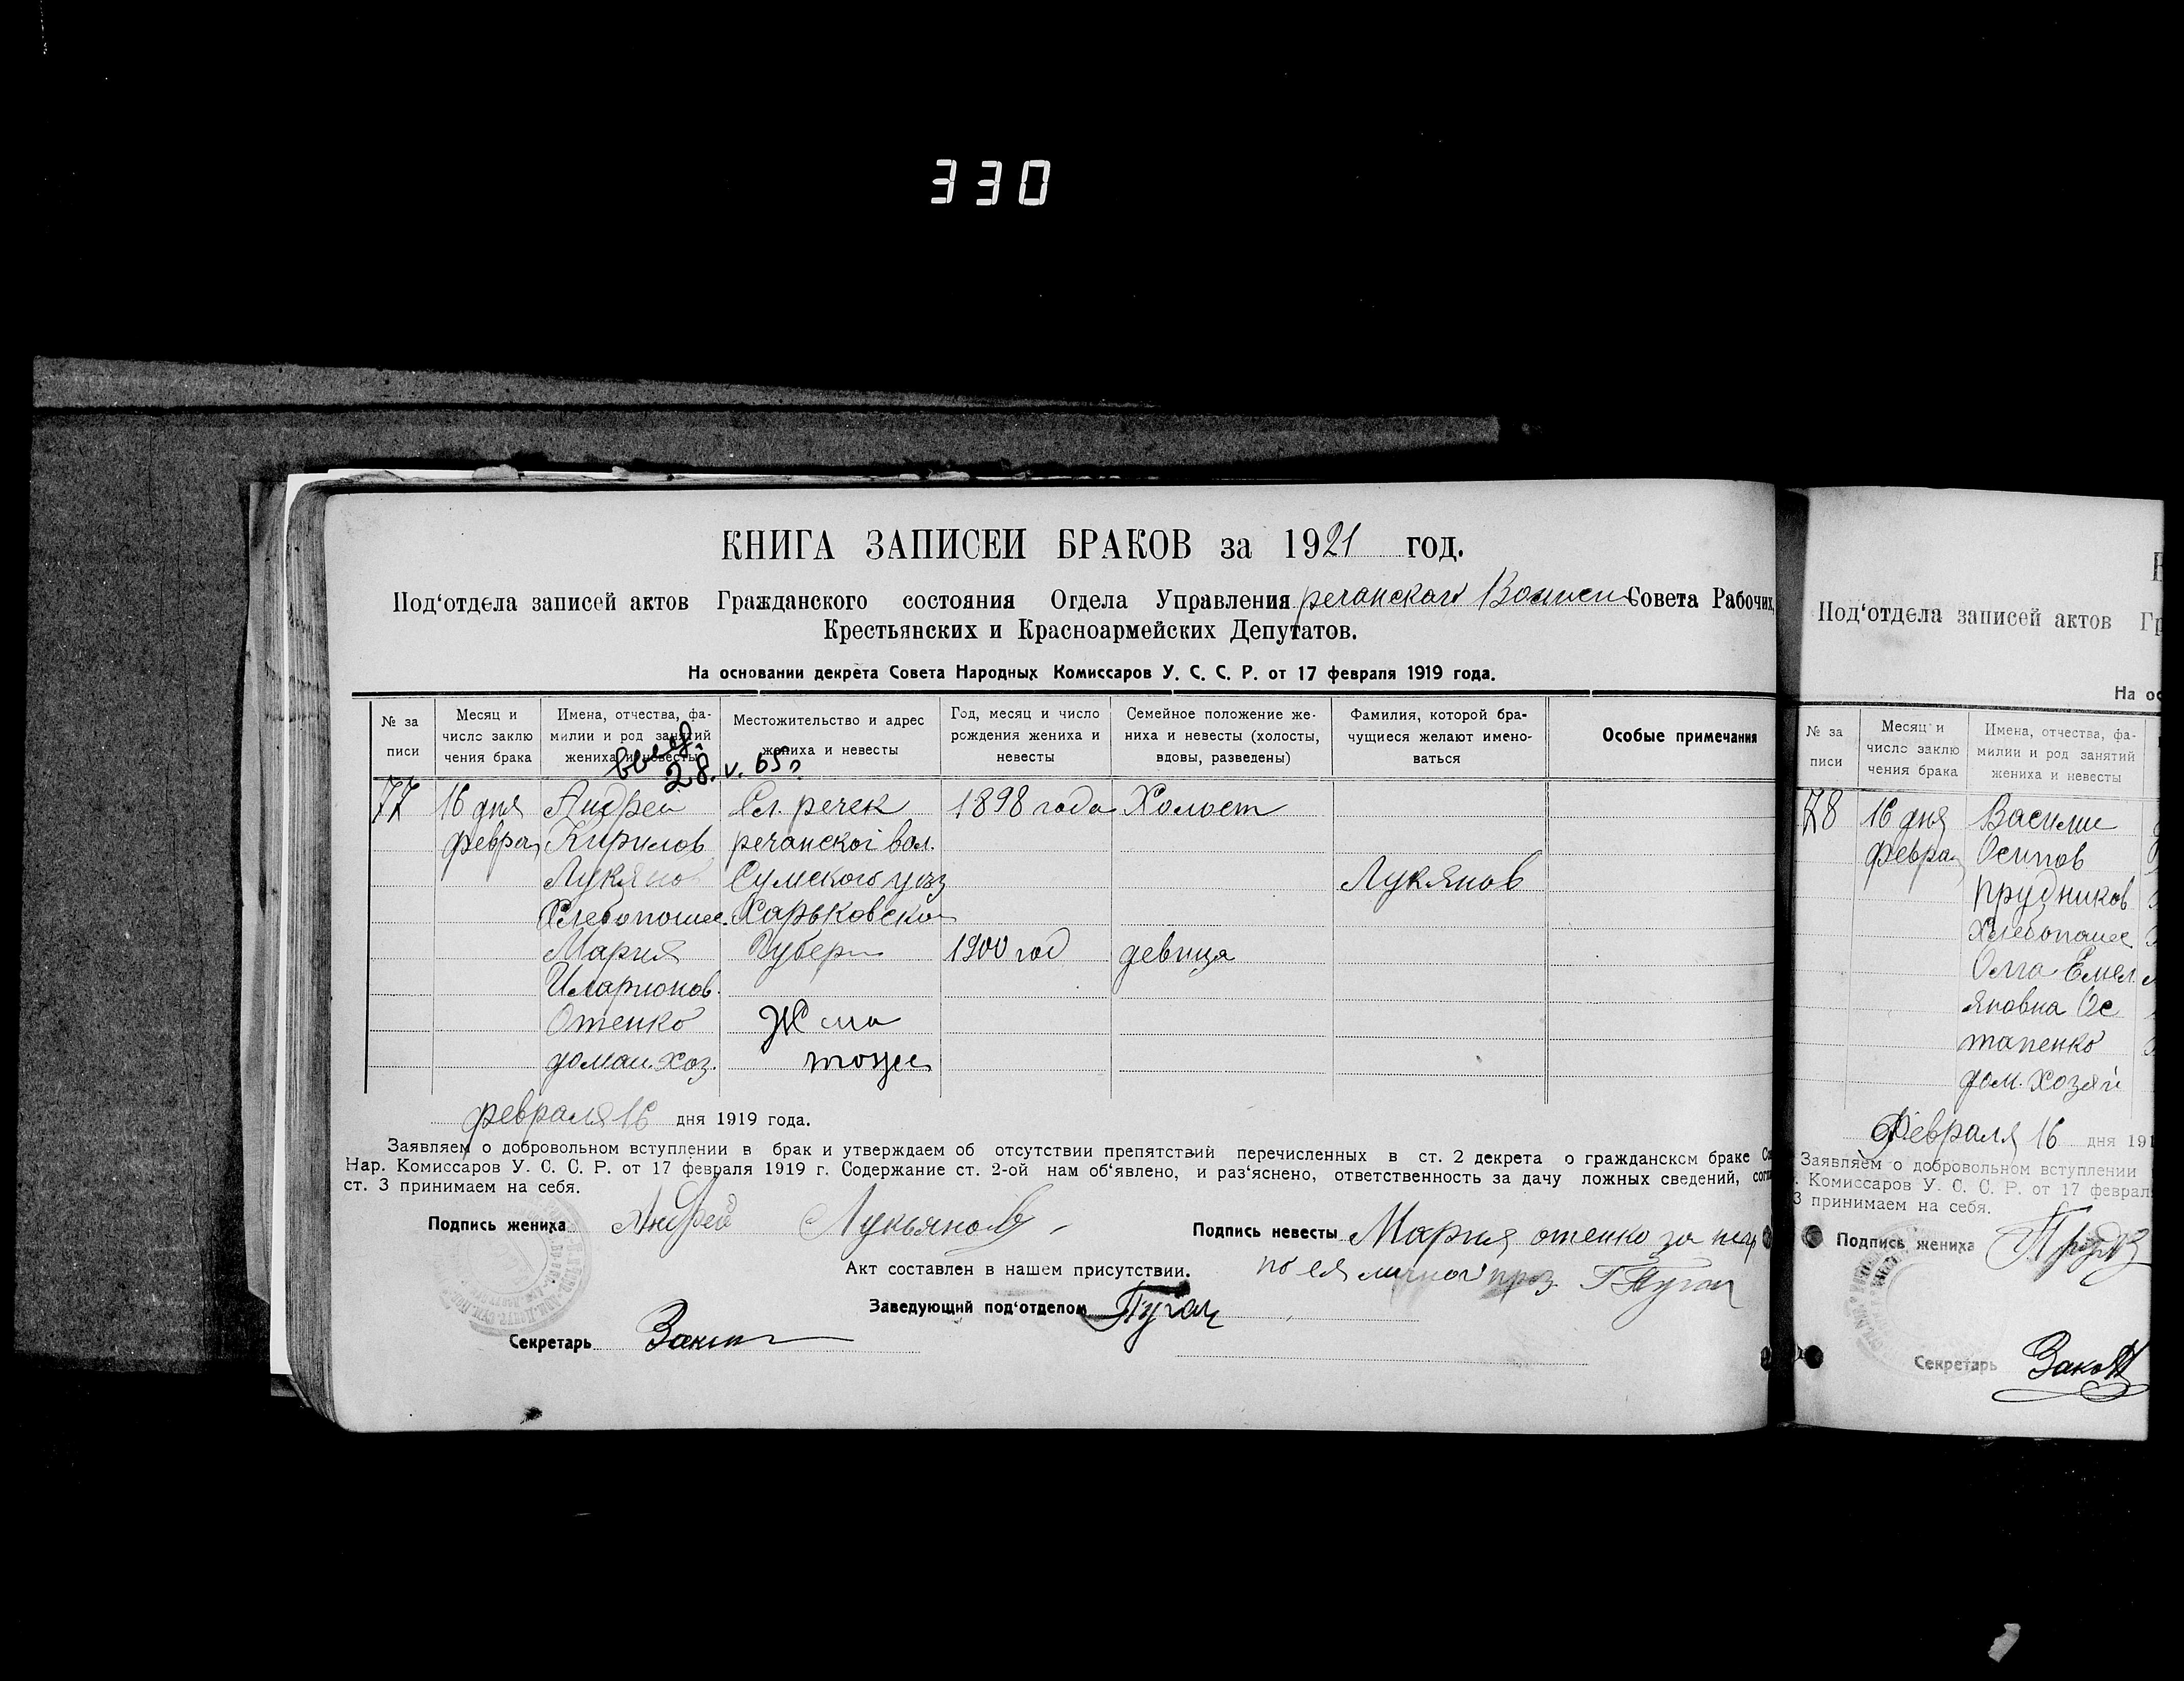 330
КНИГА ЗАПИСЕИ БРАКОВ за 1921 год.
Под‘отдела записей актов Гражданского состояния Отдела Управления речанской Совета Рабочих,
Крестьянских и Красноармейских Депутатов.
На основании декрета Совета Народных Комиссаров У. С. С. Р. от 17 февраля 1919 года.
№ за писи
Месяц и число заклю чения брака
Имена, отчества, фа- милии и род занятий жениха и невесты
Местожительство и адрес жениха и невесты
Год, месяц и число рождения жениха и невесты
Семейное положение же- ниха и невесты (холосты, вдовы, разведены)
Фамилия, которой бра- чущиеся желают имено- ваться
Особые примечания
28. v. 65
77 16 дня Андреи Сл. речек 1898 года Холост
феврал Кирилов речанской вол.
Лукянов Сумского уезз Лукянов
Хлебопашец Харьковской
Мария Губерн 1900 год девица
Иларионов.
Отенко
домаш. хоз. тоже
февраля 16 дня 1919 года.
Заявляем о добровольном вступлении в брак и утверждаем об отсутствии препятствий перечисленных в ст. 2 декрета о гражданском браке
Нар. Комиссаров У. С. С. Р. от 17 февраля 1919 г. Содержание ст. 2-ой нам об‘явлено, и раз‘яснено, ответственность за дачу ложных сведений,
ст. 3 принимаем на себя.
Подпись жениха Андрей Лукьянов
Подпись невесты Мария отенко за
по ея личной
Акт составлен в нашем присутствии.
Заведующий под‘отделом
Секретарь
Под‘отдела записей актов
№ за писи
Месяц и число заклю чения брака
Имена, отчества, фа- милии и род занятий жениха и невесты
78 16 дня Василии
феврал Осипов
Прудников
Хлебопашец
Олга Емел
яновна Ос
тапенко
дом. хозяй
Февраля 16 дня 191
Заявляем о добровольном вступлении
Комиссаров У. С. С. Р. от 17 феврал
3 принимаем на себя.
Подпись жениха
Секретарь